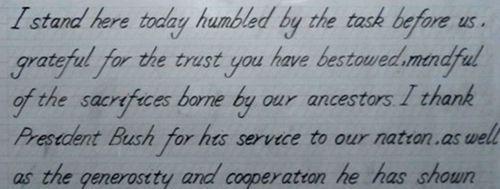 I stand here today humbled by the task before us.
grateful for the trust you have bestowed.mindful
of the sacrifices borne by our ancestors. I thank
President Bush for his service to our nation.as well
as the generosity and cooperation he has shown